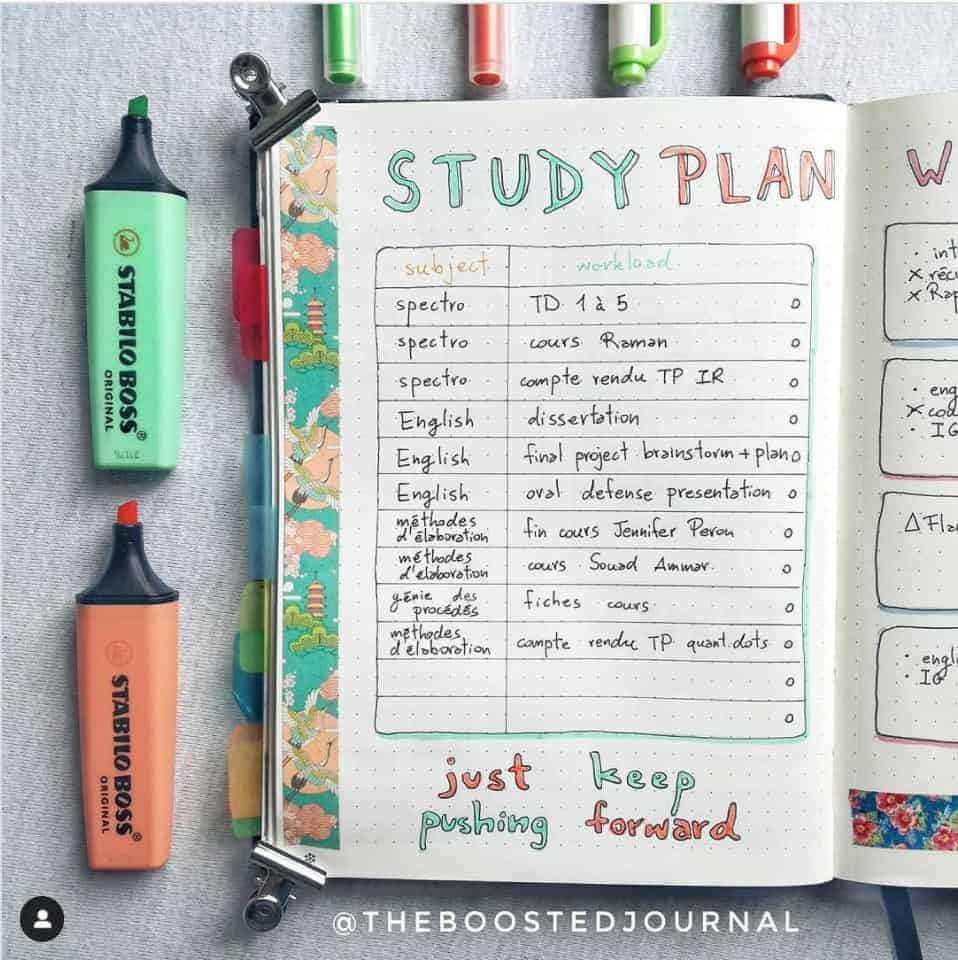 STABILO BOSS®
ORIGINAL
STABILO BOSS®
ORIGINAL
STUDY PLAN
subject workload
spectro TD 1 à 5
spectro cours Raman
spectro compte rendu TP IR
English dissertation
English final project brainstorm + plan
English oral defense presentation
méthodes
d'élaboration
fin cours Jennifer Peron
méthodes
d'élaboration
cours Souad Ammar
génie des
procédés
fiches cours
méthodes
d'élaboration
compte rendu TP quant.dots
just keep
pushing forward
W
· int
x récu
x Rap
· eng
x cou
· IG
Δ Fla
· engli
· IG
@THEBOOSTEDJOURNAL